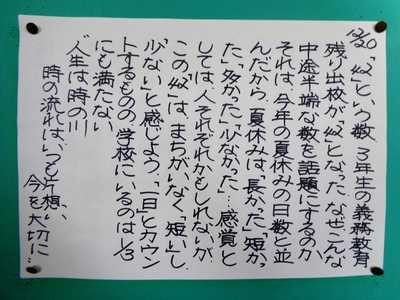 12/20 「42」という数 3年生の義務教育
残り出校が「42」となった なぜこんな
中途半端な数を話題にするのか
それは、今年の夏休みの日数と並
んだから 夏休みは、「長かった」「短かっ
た」「多かった」「少なかった」… 感覚と
しては、人それぞれかもしれないが、
この「42」は、まちがいなく「短い」し、
「少ない」と感じよう。「一日」とカウン
トするものの、学校にいるのは1/3
にも満たない
"人生は時の川
時の流れは、いつも片想い、
今を大切に…